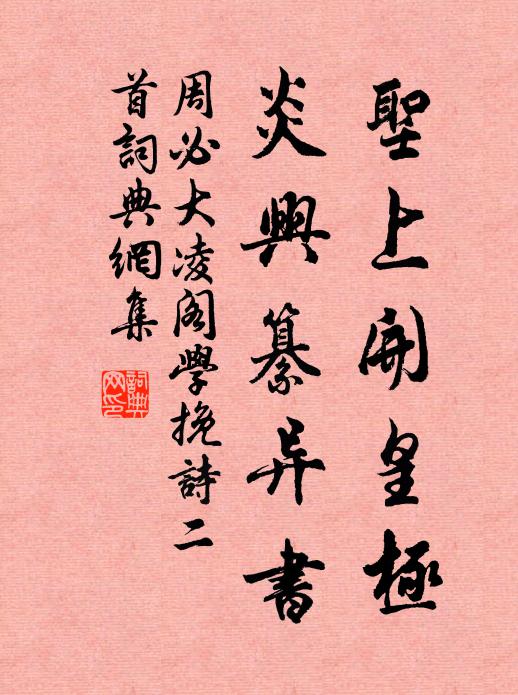 聖上開皇極
炎興纂异書
周必大凌阁學挽詩二
首詞典網集
詞典网印